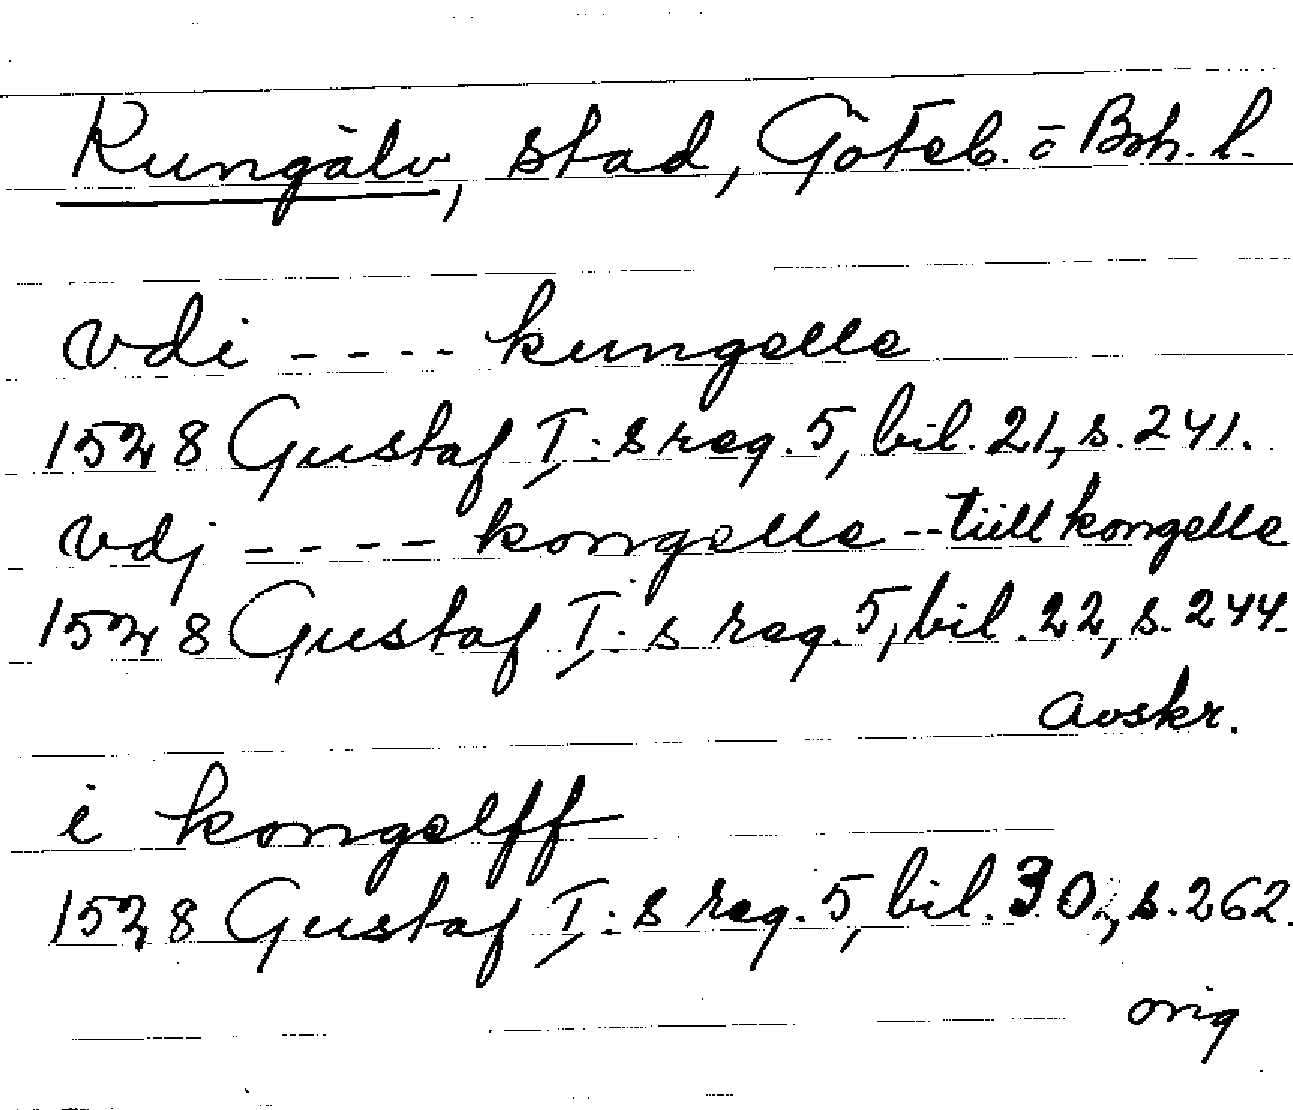 Kungälv, stad, Göteb. o Boh. l.
vdi ---- kungelle
1528 Gustaf I:s reg. 5, bil. 21, s. 241.
vdj ---- kongelle -- tiill kongelle
1528 Gustaf I:s reg. 5, bil. 22, s. 244.
avskr.
i kongelff
1528 Gustaf I:s reg. 5, bil. 30, s. 262.
orig